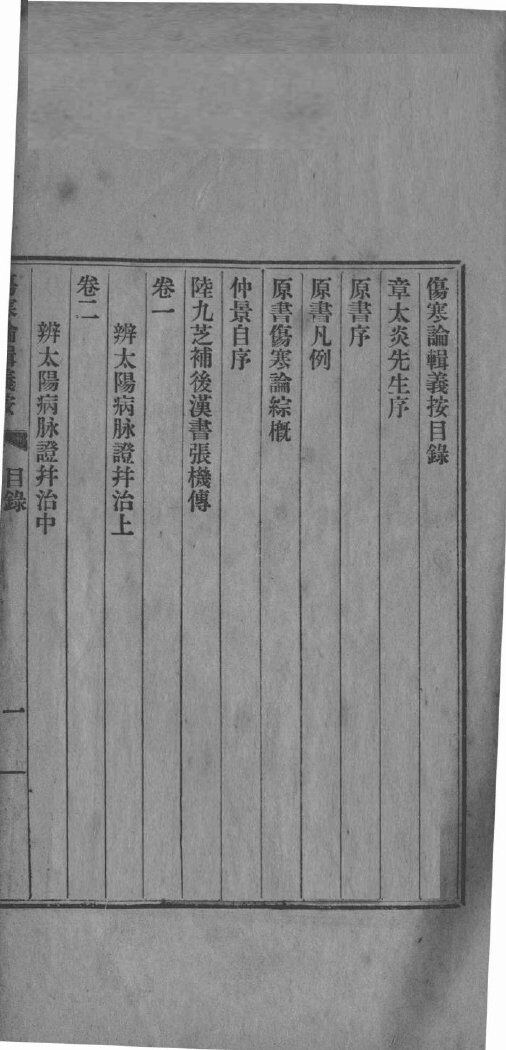 傷寒論輯義按目錄
章太炎先生序
原書序
原書凡例
原書傷寒論綜槪
仲景自序
陸九芝補後漢書張機傳
卷一
辨太陽病脉證幷治上
卷二
辨太陽病脉證幷治中
目錄
一